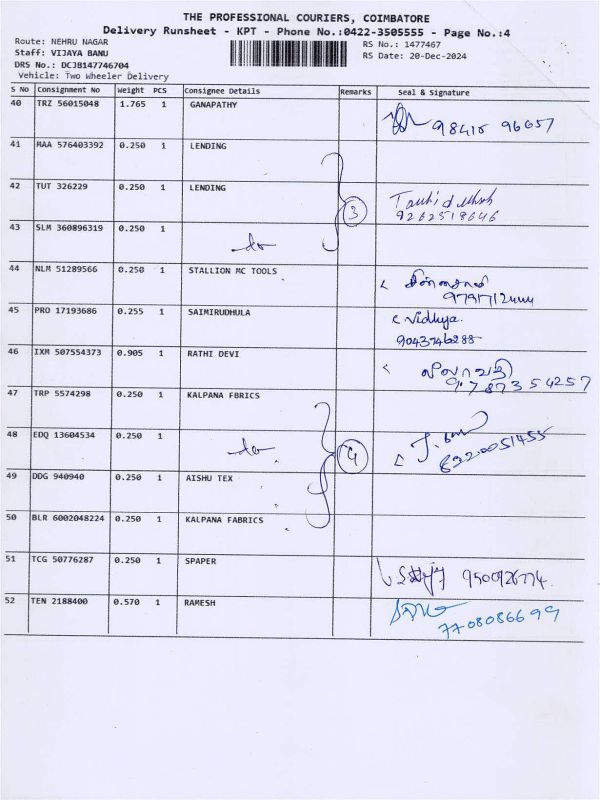 THE PROFESSIONAL COURIERS, COIMBATORE
Delivery Runsheet - KPT - Phone No.:0422-3505555 - Page No.:4
Route: NEHRU NAGAR
Staff: VIJAYA BANU
DRS No.: DCJB147746704
Vehicle: Two Wheeler Delivery
RS No.: 1477467
RS Date: 20-Dec-2024
S No Consignment No Weight PCS Consignee Details Remarks Seal & Signature
40 TRZ 56015048 1.765 1 GANAPATHY
41 MAA 576403392 0.250 1 LENDING
42 TUT 326229 0.250 1 LENDING 3 9262518646
43 SLM 360896319 0.250 1 do
44 NLM 51289566 0.250 1 STALLION MC TOOLS
45 PRO 17193686 0.255 1 SAIMIRUDHULA c Vidhya. 9043746288
46 IXM 507554373 0.905 1 RATHI DEVI லீலாவதி 9787354257
47 TRP 5574298 0.250 1 KALPANA FBRICS
48 EDQ 13604534 0.250 1 do 4 6320051455
49 DDG 940940 0.250 1 AISHU TEX
50 BLR 6002048224 0.250 1 KALPANA FABRICS
51 TCG 50776287 0.250 1 SPAPER
52 TEN 2188400 0.570 1 RAMESH 7708086699